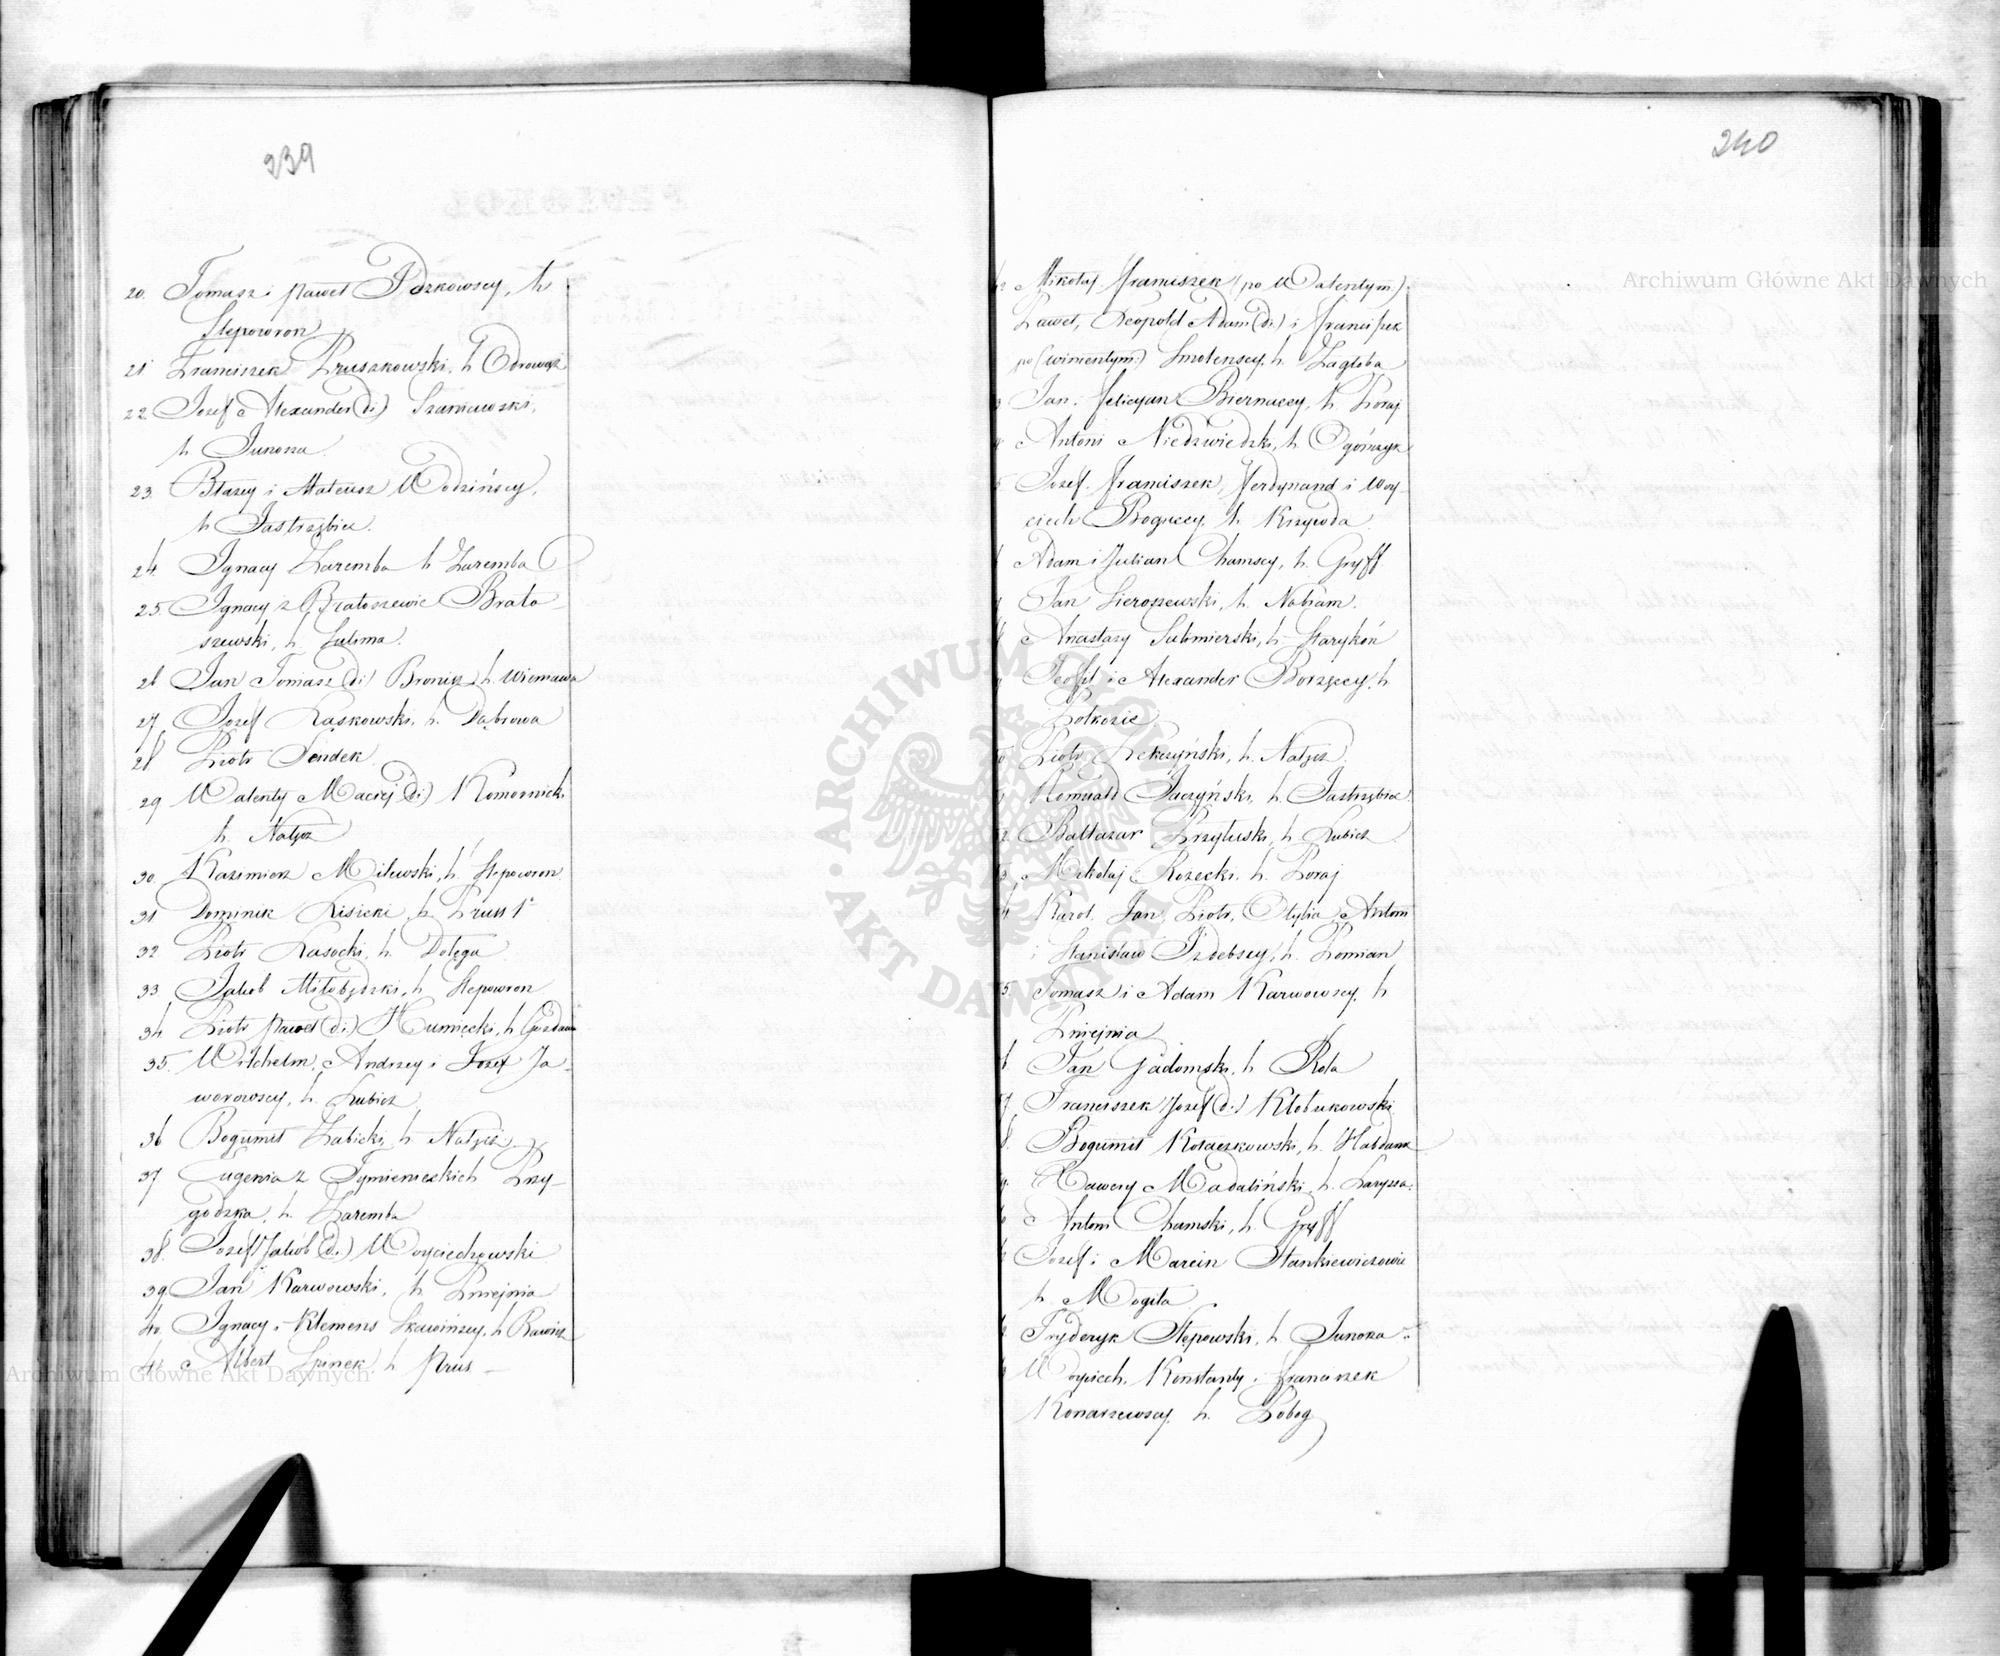 239
20. Tomasz i Paweł Pdzkowscy, h.
Slepowron
21 Franciszek Pruszkowski, h. Odrowąż
22 Józef Alexander (2i) Szaniawski,
h Junosza.
23. Błazey i Mateusz Wodzińscy,
h Jastrzębiec.
24. Ignacy Zaremba h Zaremba
25. Ignacy z Bratoszewic Brato
szewski, h. Sulima.
26 Jan Tomasz (2i) Bronisz, h. Wieniawa
27 Józef Laskowski, h. Dąbrowa
28 Piotr Sendek
29 Walenty Maciej (2i) Komornicki
h. Nałęcz
30. Kazimierz Milewski, h. Slepowron
31 Dominik Lisicki, h. Pruss 1º
32 Piotr Lasocki, h. Dołęga
33 Jakób Miłobędzki, h Slepowron
34 Piotr Paweł (2i) Humięcki, h Gozdawa
35. Wilhelm, Andrzey i Józef Ja-
worowscy, h. Lubicz
36 Bogumił Zabicki, h Nałęcz
37 Eugenia z Tymienieckich Przy-
godzka, h. Zaremba
38. Józef Jakób (2i) Woyciechowski
39 Jan Karwowski, h Pniejnia
40. Ignacy i Klemens Skawińscy, h Rawicz
41. Albert Spinek h Prus
240
2 Mikołaj Franciszek (po Walentym)
Paweł, Leopold Adam (2i) i Franciszek
po (Wincentym) Smolenscy, h. Zagłoba
3 Jan i Felicyan Biernaccy, h. Poraj
4 Antoni Niedzwiedzki, h Ogończyk
5 Józef, Franciszek, Ferdynand i Woy-
ciech Boguccy, h. Krzywda
6 Adam i Julian Chamscy, h. Gryff
7 Jan Sieroszewski, h. Nabram.
8 Anastazy Submierski, h Starykoń
9 Teofil i Alexander Borzęccy, h
Półkozic
0 Piotr Lekczyński, h. Nałęcz
1 Romuald Jaczyński, h. Jastrzębiec
2. Baltazar Przyłuski, h. Lubicz
3 Mikołaj Rozecki, h. Poraj
4 Karol, Jan, Piotr, Otylia, Antoni
i Stanisław Izdebscy, h. Pomian
5. Tomasz i Adam Karwowscy, h
Pniejnia
6. Jan Gadomski, h Rola
7. Franciszek Józef (2i) Kłobukowski
8. Bogumił Kołaczkowski, h. Habdank
9. Xawery Madaliński, h. Laryssa
0 Antoni Chamski, h. Gryff
1 Józef i Marcin Stankiewiczowie
h. Mogiła
2 Fryderyk Stępowski, h Junosza
3 Woyciech, Konstanty i Franciszek
Konarzewscy, h. Pobog
Archiwum Główne Akt Dawnych
Archiwum Główne Akt Dawnych
ARCHIWUM GŁÓWNE AKT DAWNYCH